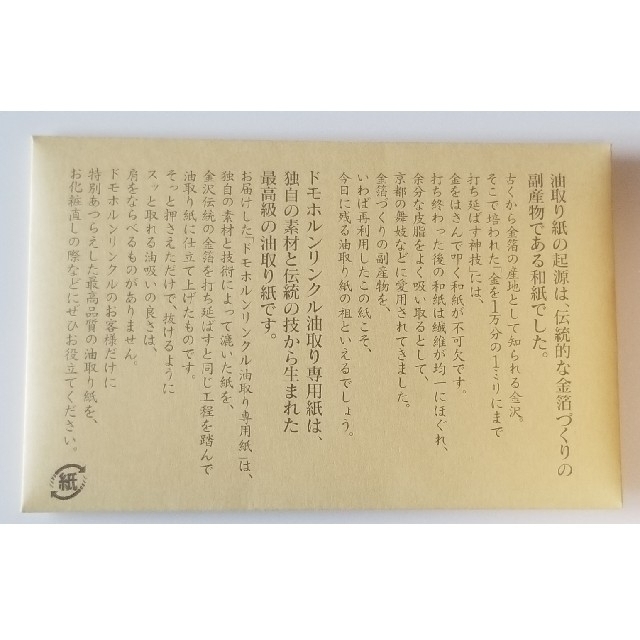 油取り紙の起源は、伝統的な金箔づくりの
副産物である和紙でした。
古くから金箔の産地として知られる金沢。
そこで培われた「金を1万分の1ミリにまで
打ち延ばす神技」には、
金をはさんで叩く和紙が不可欠です。
打ち終わった後の和紙は繊維が均一にほぐれ、
余分な皮脂をよく吸い取るとして、
京都の舞妓などに愛用されてきました。
金箔づくりの副産物を、
いわば再利用したこの紙こそ、
今日に残る油取り紙の祖といえるでしょう。
ドモホルンリンクル油取り専用紙は、
独自の素材と伝統の技から生まれた
最高級の油取り紙です。
お届けした「ドモホルンリンクル油取り専用紙」は、
独自の素材と技術によって漉いた紙を、
金沢伝統の金箔を打ち延ばすと同じ工程を踏んで
油取り紙に仕立て上げたものです。
そっと押さえただけで、抜けるように
スッと取れる油吸いの良さは、
肩をならべるものがありません。
ドモホルンリンクルのお客様だけに
特別あつらえした最高品質の油取り紙を、
お化粧直しの際などにぜひお役立てください。
紙